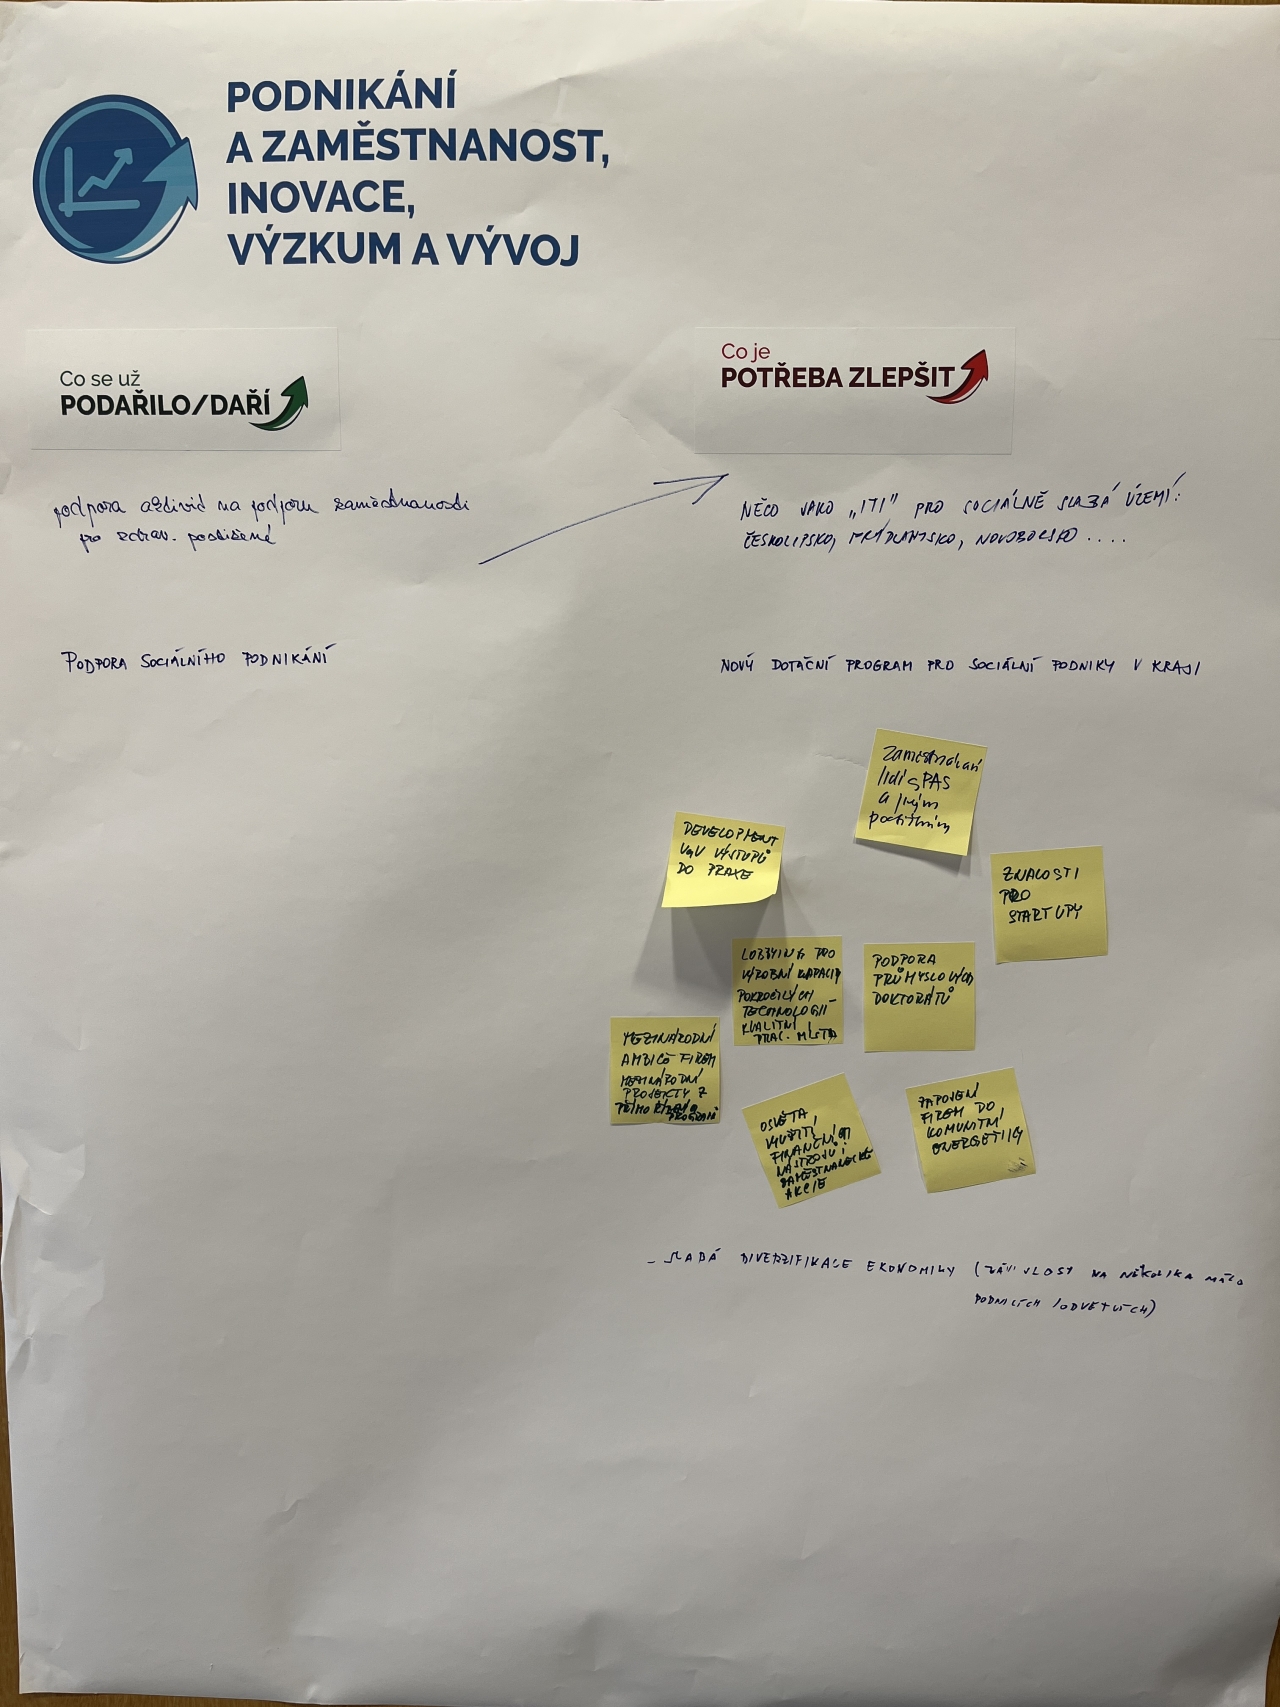 PODNIKÁNÍ
A ZAMĚSTNANOST,
INOVACE,
VÝZKUM A VÝVOJ
Co se už
PODAŘILO/DAŘÍ
podpora aktivit na podporu zaměstnanosti
pro zdrav. postižené
PODPORA SOCIÁLNÍHO PODNIKÁNÍ
Co je
POTŘEBA ZLEPŠIT
NĚCO JAKO „ITI" PRO SOCIÁLNĚ SLABÁ ÚZEMÍ:
ČESKOLIPSKO, FRÝDLANTSKO, NOVOBORSKO ....
NOVÝ DOTAČNÍ PROGRAM PRO SOCIÁLNÍ PODNIKY V KRAJI
Zaměstnávání
lidí s PAS
a jiným
postižením
DEVELOPMENT
VaV VÝSTUPŮ
DO PRAXE
ZNALOSTI
PRO
STARTUPY
LOBBYING PRO
VÝROBNÍ KAPACIT
POKROČILÝCH
TECHNOLOGIÍ -
KVALITNÍ
PRAC. MÍSTA
PODPORA
PRŮMYSLOVÝCH
DOKTORÁTŮ
MEZINÁRODNÍ
AMBICE FIREM
MEZINÁRODNÍ
PROJEKTY Z
PŘÍMO ŘÍZENÝCH
PROGRAMŮ
OSVĚTA,
VYUŽITÍ
FINANČNÍCH
NÁSTROJŮ
ZAMĚSTNANECKÉ
AKCIE
ZAPOJENÍ
FIREM DO
KOMUNITNÍ
ENERGETIKY
- SLABÁ DIVERZIFIKACE EKONOMIKY (ZÁVISLOST NA NĚKOLIKA MÁLO
PODNICÍCH /ODVĚTVÍCH)